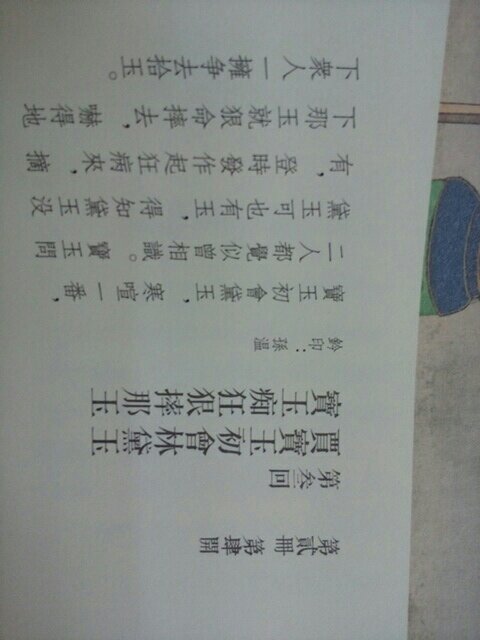 第貳冊 第肆開
第叁回
賈寶玉初會林黛玉
寶玉痴狂狠摔那玉
鈐印：孫温
寶玉初會黛玉，寒暄一番，
二人都覺似曾相識。寶玉問
黛玉可也有玉，得知黛玉没
有，登時發作起狂病來，摘
下那玉就狠命摔去，嚇得地
下衆人一擁争去拾玉。